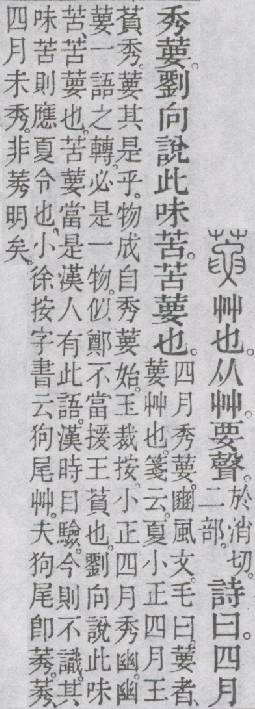 葽艸也。从艸。要聲。於消切。二部。詩曰。四月
秀葽。劉向說此味苦。苦葽也。四月秀葽。豳風文。毛曰。葽者、
葽艸也。箋云。夏小正四月王
萯秀。葽其是乎。物成自秀葽始。玉裁按。小正四月秀幽。幽
葽一語之轉。必是一物。似鄭不當援王萯也。劉向說此味
苦、苦葽也。苦葽當是漢人有此語。漢時目驗。今則不識。其
味苦則應夏令也。小徐按字書云狗尾艸。夫狗尾卽莠。莠
四月未秀。非莠明矣。